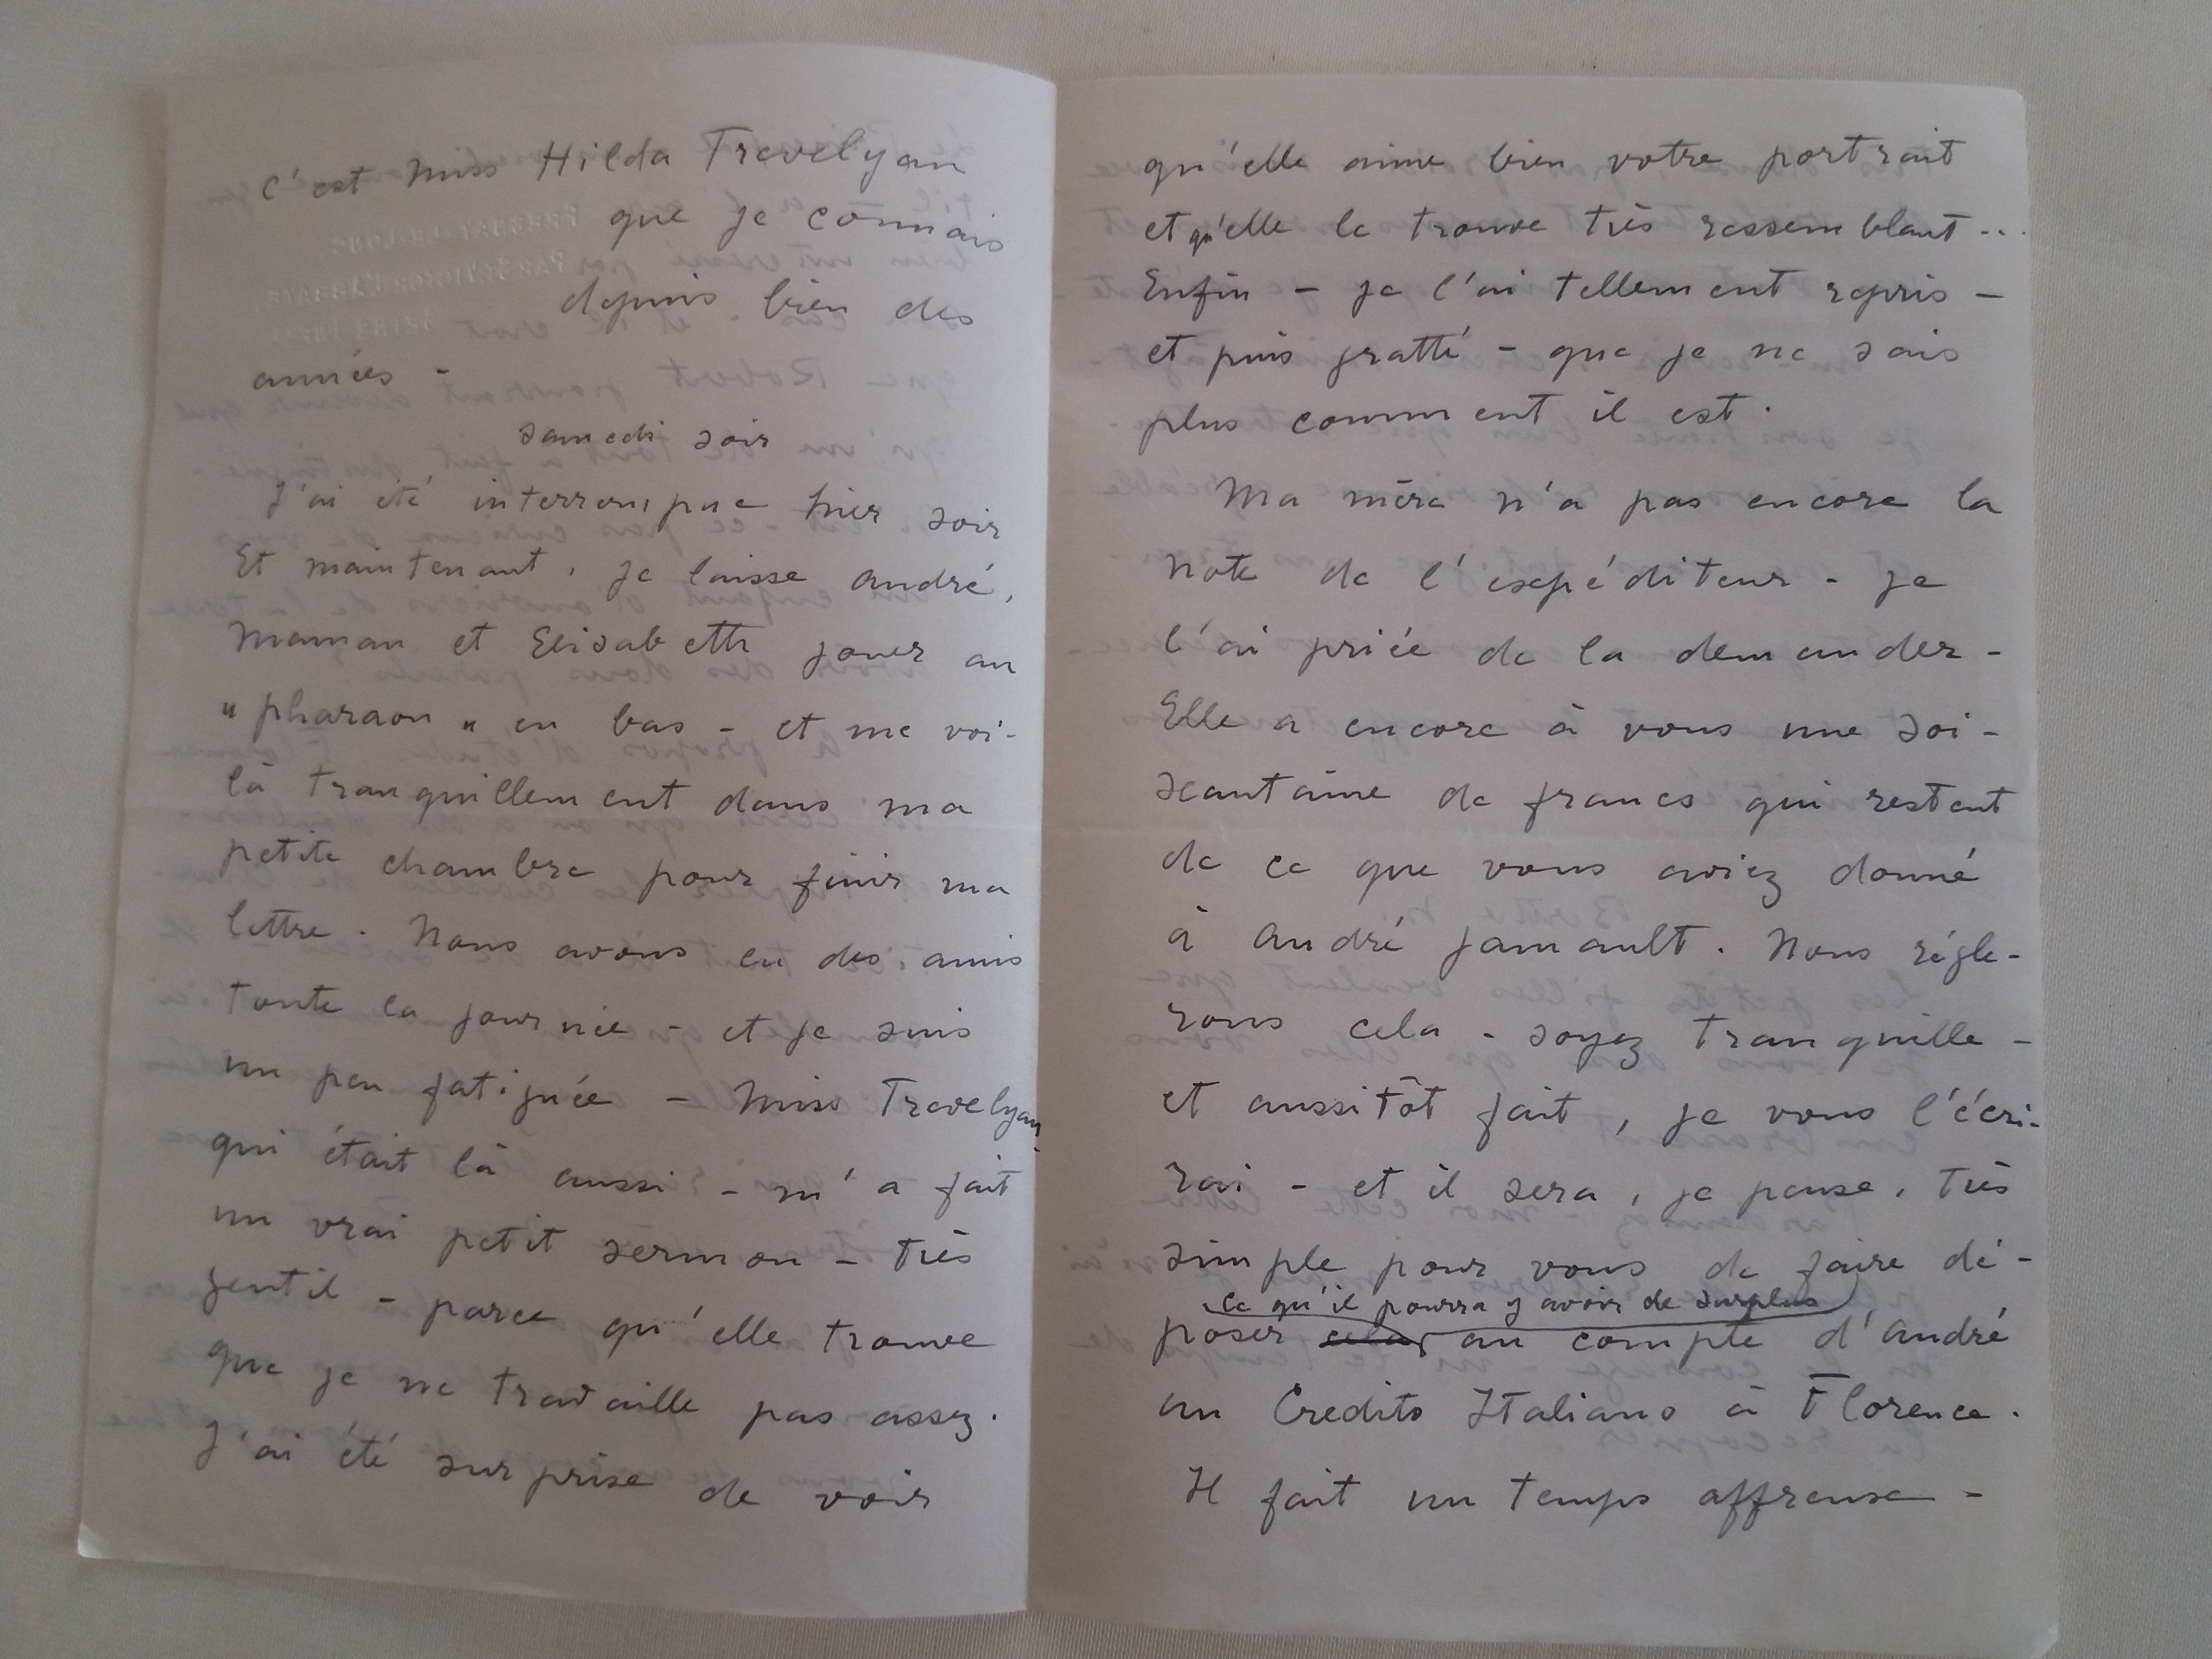 C'est Miss Hilda Trevelyan
que je connais
depuis bien des
années -
samedi soir
J'ai été interrompue hier soir
Et maintenant, je laisse André,
Maman et Elisabeth jouer au
"pharaon" en bas - et me voi-
là tranquillement dans ma
petite chambre pour finir ma
lettre. Nous avons eu des amis
toute la journée - et je suis
un peu fatiguée - Miss Trevelyan
qui était là aussi - m'a fait
un vrai petit sermon - très
gentil - parce qu'elle trouve
que je ne travaille pas assez.
J'ai été surprise de voir
qu'elle aime bien votre portrait
et qu'elle le trouve très ressemblant...
Enfin - je l'ai tellement repris -
et puis gratté - que je ne sais
plus comment il est.
Ma mère n'a pas encore la
note de l'expéditeur - je
l'ai priée de la demander -
Elle a encore à vous une soi-
xantaine de francs qui restent
de ce que vous aviez donné
à André Jamault. Nous régle-
rons cela - soyez tranquille -
et aussitôt fait, je vous l'écri-
rai - et il sera, je pense, très
simple pour vous de faire dé-
ce qu'il pourra y avoir de surplus
poser cela au compte d'André
au Credito Italiano à Florence.
Il fait un temps affreuse -